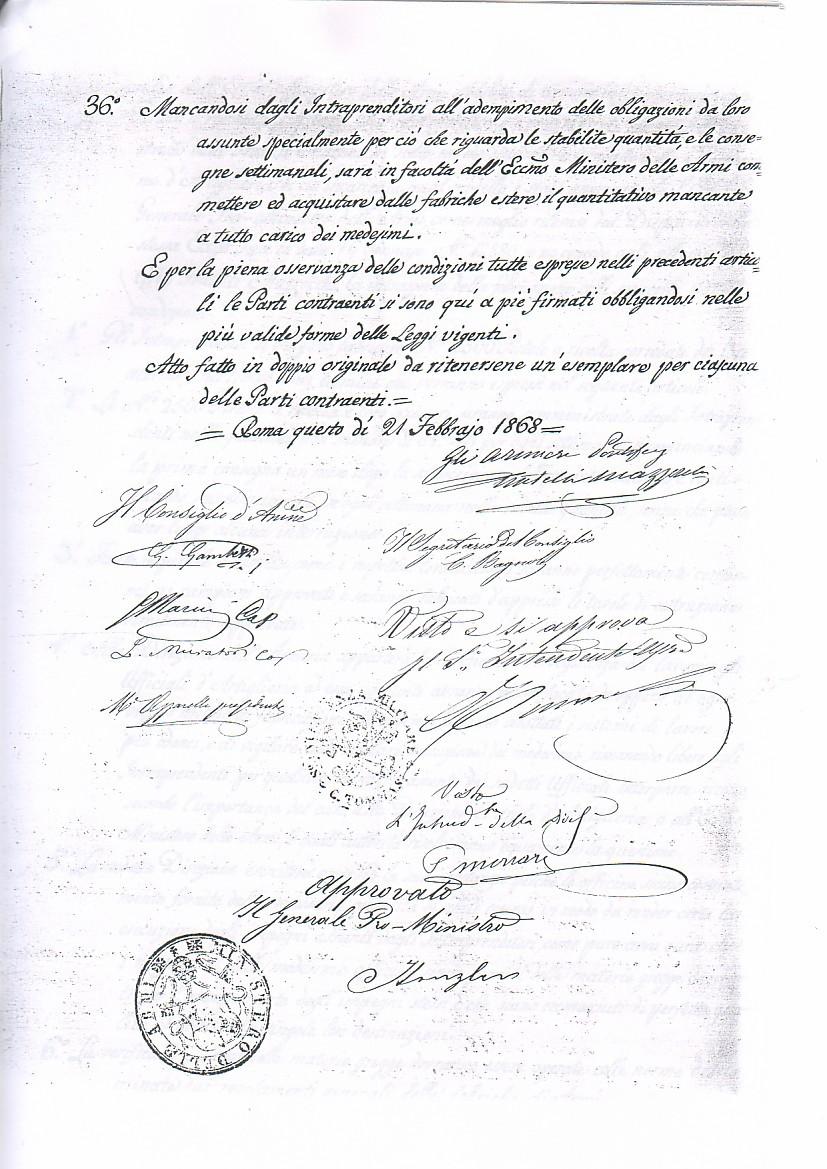 36.° Mancandosi dagli Intraprenditori all'adempimento delle obligazioni da loro
assunte specialmente per ciò che riguarda le stabilite quantità, e le conse=
gne settimanali, sarà in facoltà dell'Eccm̃o Ministero delle Armi com=
mettere ed acquistare dalle fabriche estere il quantitativo mancante
a tutto carico dei medesimi.
E per la piena osservanza delle condizioni tutte espresse nelli precedenti artico=
li le Parti contraenti si sono qui a piè firmati obbligandosi nelle
più valide forme delle Leggi vigenti.
Atto fatto in doppio originale da ritenersene un'esemplare per ciascuna
delle Parti contraenti.=
= Roma questo dì 21 Febbrajo 1868=
Gli Armieri
Fratelli Mazzocchi
Il Consiglio d'Am̃ne
Il Segretario del Consiglio
C. Bagnoli
Cap
L. Muratori Cap
Visto e si approva
Intendente
presidente
Visto
della
Approvato
Il Generale Pro-Ministro
Kanzler
MINISTERO DELLE ARMI